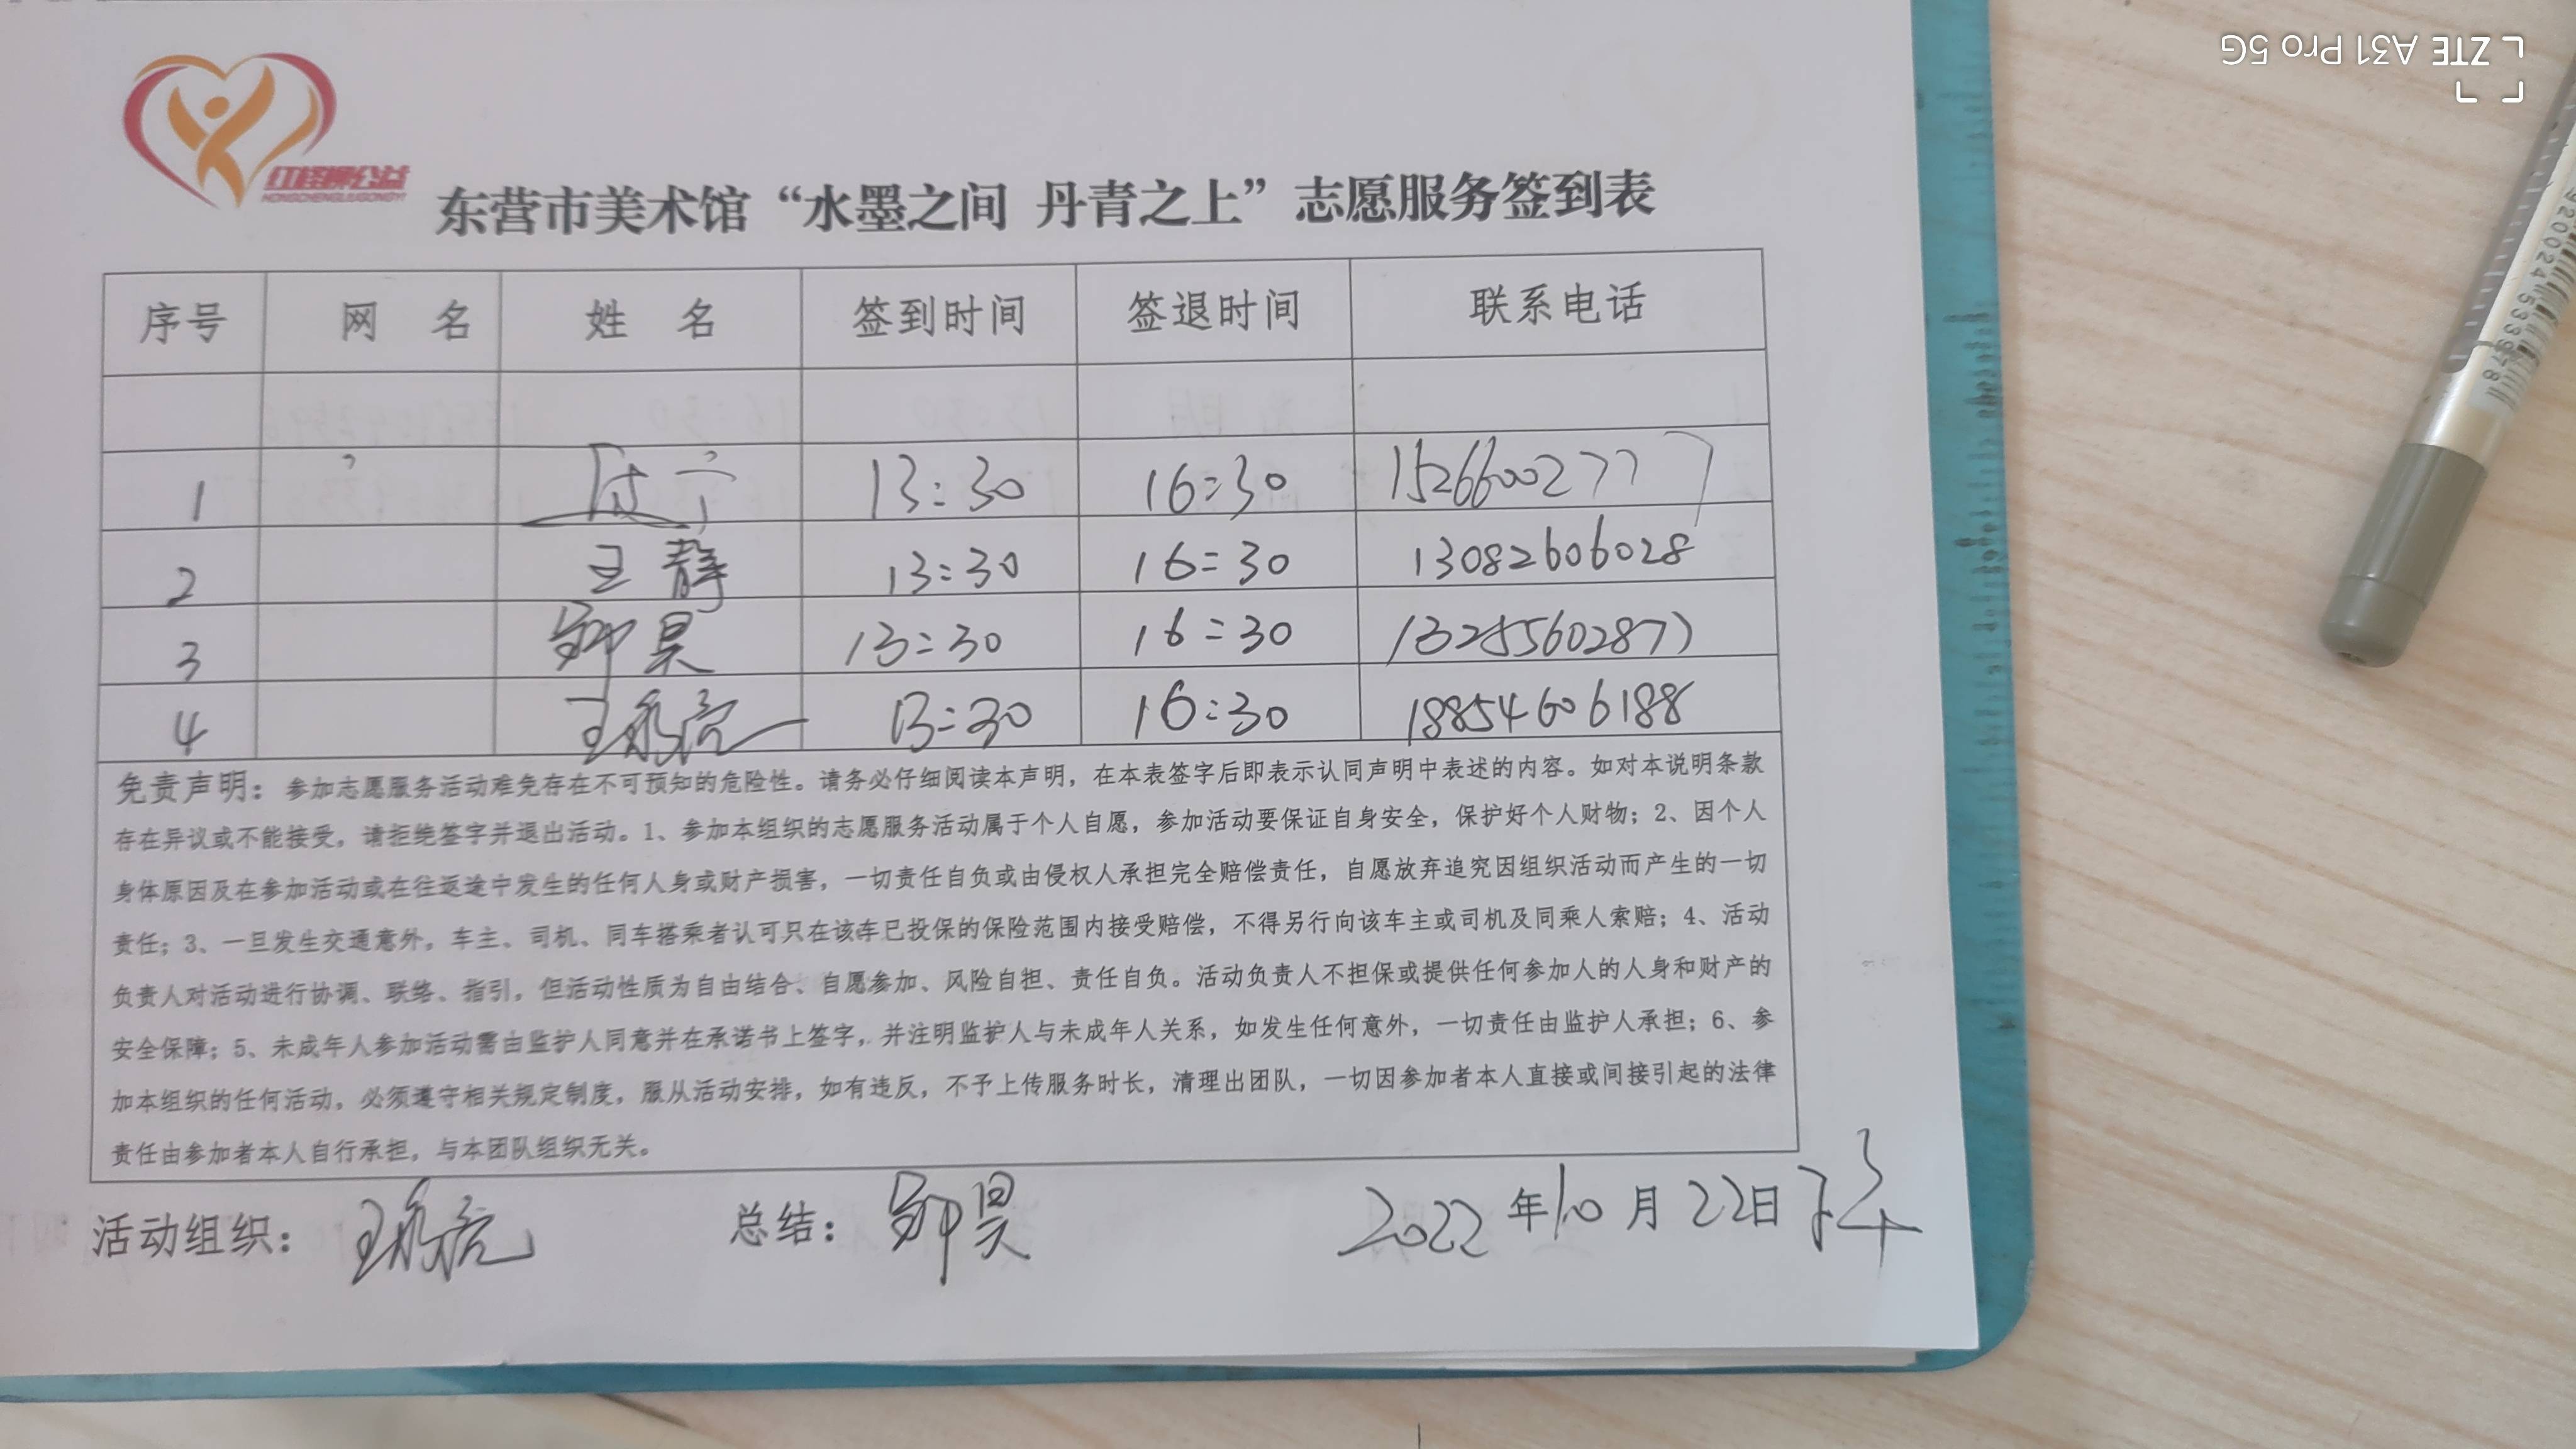 ZTE A31 Pro 5G
红柽柳公益
HONGCHENGLIUGONGYI
东营市美术馆“水墨之间 丹青之上”志愿服务签到表
序号 网 名 姓 名 签到时间 签退时间 联系电话
1 13:30 16:30 15266002777
2 王静 13:30 16:30 13082606028
3 昊 13:30 16:30 13255602877
4 王 亮 13:30 16:30 18854606188
免责声明：参加志愿服务活动难免存在不可预知的危险性。请务必仔细阅读本声明，在本表签字后即表示认同声明中表述的内容。如对本说明条款
存在异议或不能接受，请拒绝签字并退出活动。1、参加本组织的志愿服务活动属于个人自愿，参加活动要保证自身安全，保护好个人财物；2、因个人
身体原因及在参加活动或在往返途中发生的任何人身或财产损害，一切责任自负或由侵权人承担完全赔偿责任，自愿放弃追究因组织活动而产生的一切
责任；3、一旦发生交通意外，车主、司机、同车搭乘者认可只在该车已投保的保险范围内接受赔偿，不得另行向该车主或司机及同乘人索赔；4、活动
负责人对活动进行协调、联络、指引，但活动性质为自由结合、自愿参加、风险自担、责任自负。活动负责人不担保或提供任何参加人的人身和财产的
安全保障；5、未成年人参加活动需由监护人同意并在承诺书上签字，并注明监护人与未成年人关系，如发生任何意外，一切责任由监护人承担；6、参
加本组织的任何活动，必须遵守相关规定制度，服从活动安排，如有违反，不予上传服务时长，清理出团队，一切因参加者本人直接或间接引起的法律
责任由参加者本人自行承担，与本团队组织无关。
活动组织：王 亮 总结： 昊 2022年10月22日下午